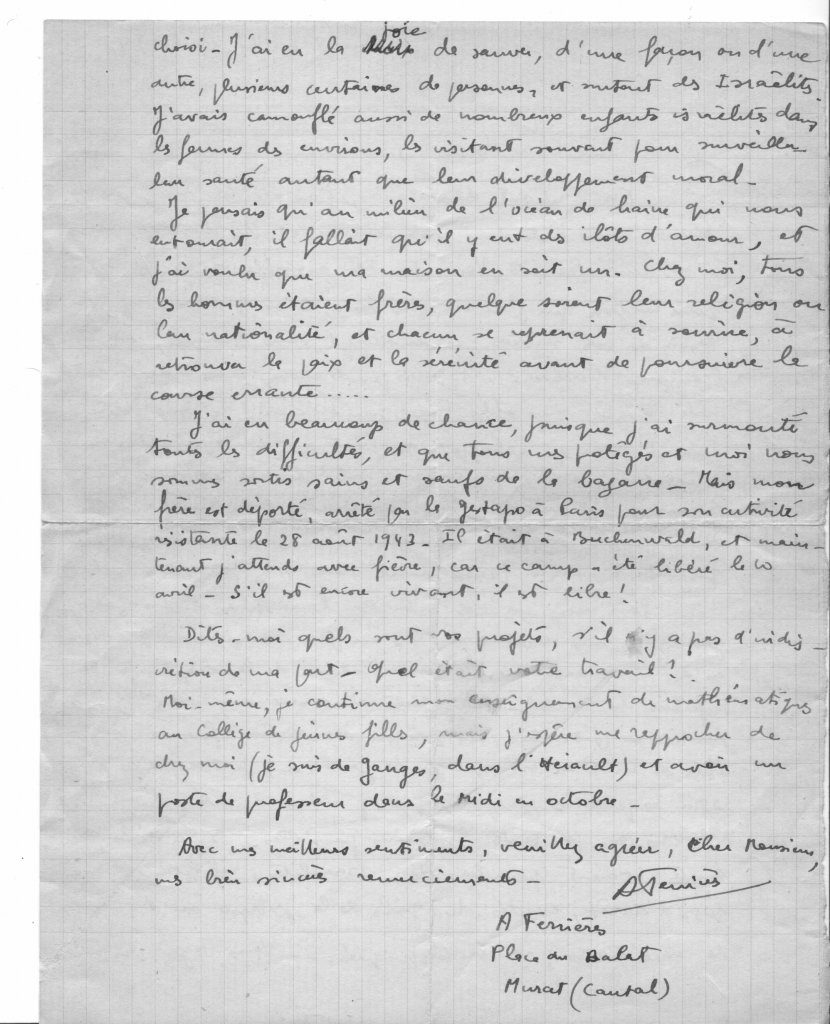 choisi - J'ai eu la joie de sauver, d'une façon ou d'une
autre, plusieurs centaines de personnes, et surtout des Israëlites.
J'avais camouflé aussi de nombreux enfants israëlites dans
les fermes des environs, les visitant souvent pour surveiller
leur santé autant que leur développement moral -
Je pensais qu'au milieu de l'océan de haine qui nous
entourait, il fallait qu'il y eut des ilôts d'amour, et
j'ai voulu que ma maison en soit un. Chez moi, tous
les hommes étaient frères, quelque soient leur religion ou
leur nationalité, et chacun se reprenait à sourire, à
retrouver la paix et la sérénité avant de poursuivre la
course errante.....
J'ai eu beaucoup de chance, puisque j'ai surmonté
toutes les difficultés, et que tous mes protégés et moi nous
sommes sortis sains et saufs de la bagarre - Mais mon
frère est déporté, arrêté par la gestapo à Paris pour son activité
résistante le 28 août 1943 - Il était à Buchenwald, et main-
tenant j'attends avec fièvre, car ce camp a été libéré le 10
avril - S'il est encore vivant, il est libre !
Dites-moi quels sont vos projets, s'il n'y a pas d'indis-
crétion de ma part - Quel était votre travail ?
Moi-même, je continue mon enseignement de mathématiques
au Collège de jeunes filles, mais j'espère me rapprocher de
chez moi (je suis de Ganges, dans l'Hérault) et avoir un
poste de professeur dans le Midi en octobre -
Avec mes meilleurs sentiments, veuillez agréer, Cher Monsieur,
mes bien sincères remerciements -
A Ferrières
A Ferrières
Place du Balat
Murat (Cantal)